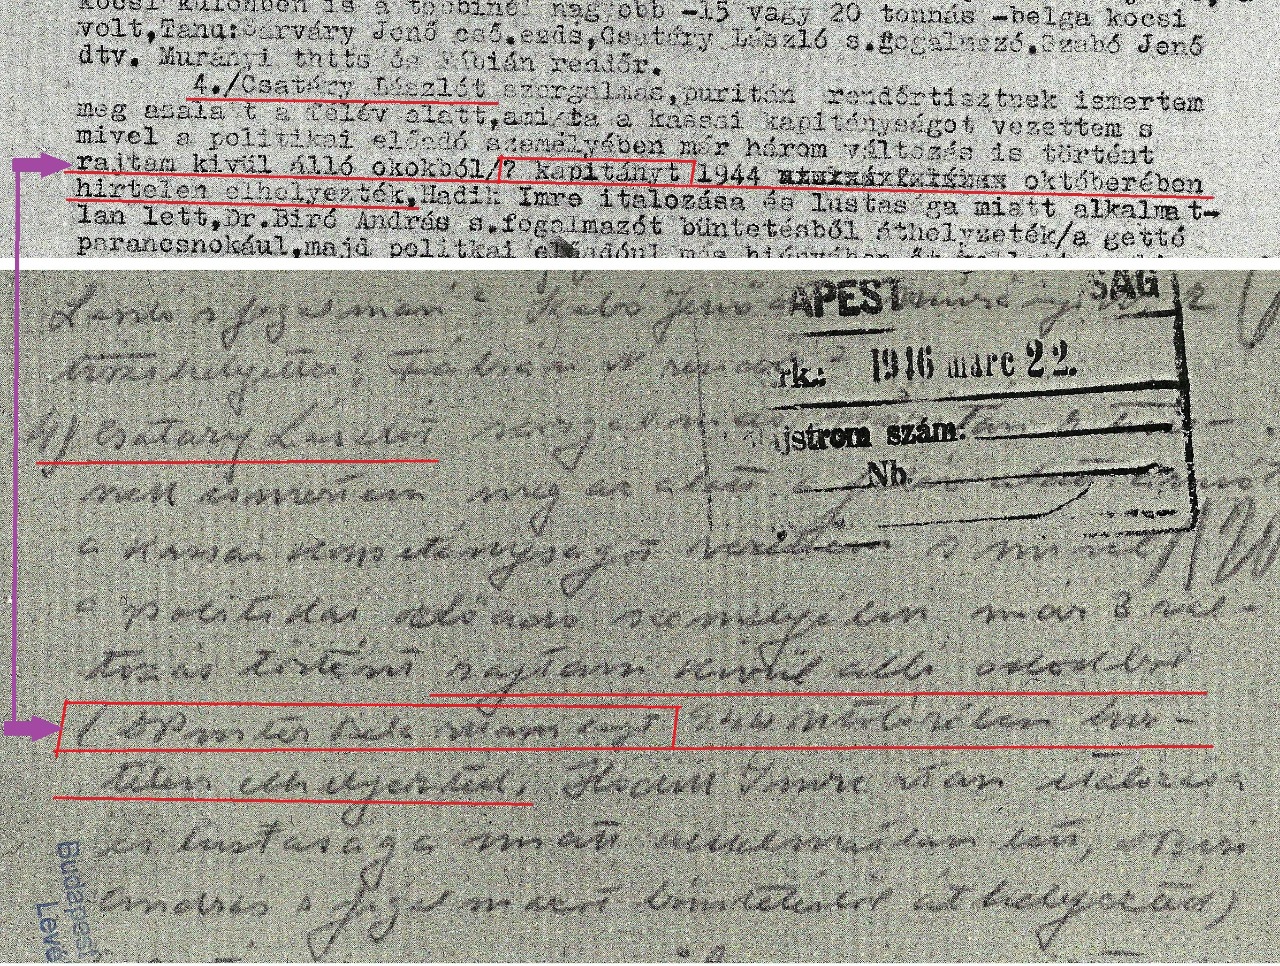 kocsi különben is a többinél nagyobb -15 vagy 20 tonnás -belga kocsi
volt,Tanu:Sárváry Jenő cső.ezds,Csatáry László s.fogalmazó.Szabó Jenő
dtv. Murányi thtts és Fábián rendőr.
4./Csatáry Lászlót szorgalmas,puritán rendőrtisztnek ismertem
meg azala t a félév alatt,amigta a kassai kapitányságot vezettem s
mivel a politikai előadó személyében már három változás is történt
rajtam kivül álló okokból/? kapitányt 1944 októberében
hirtelen elhelyezték,Hadik Imre italozása és lustasága miatt alkalmat-
lan lett,Dr.Biró András s.fogalmazót büntetésből áthelyzeték/a gettó
parancsnokául,majd politkai előadóul más hiányában
László s fogalmazó Szabó Jenő
APEST SÁG
törzshelyettes, Fábián
rk.: 1946 márc 22.
4) Csatáry Lászlót
jstrom szám:
nek ismertem meg az alatt a
Nb.
a kassai kapitányságot vezettem s mivel
a politikai előadó személyében már 3 vál-
tozás történt rajtam kívül álló okokból
októberében hir-
telen elhelyezték, Hadik Imre italozása
és lustasága miatt alkalmatlan lett, Biró
András s fogalmazót büntetésből áthelyezték)
Budapest
Levé